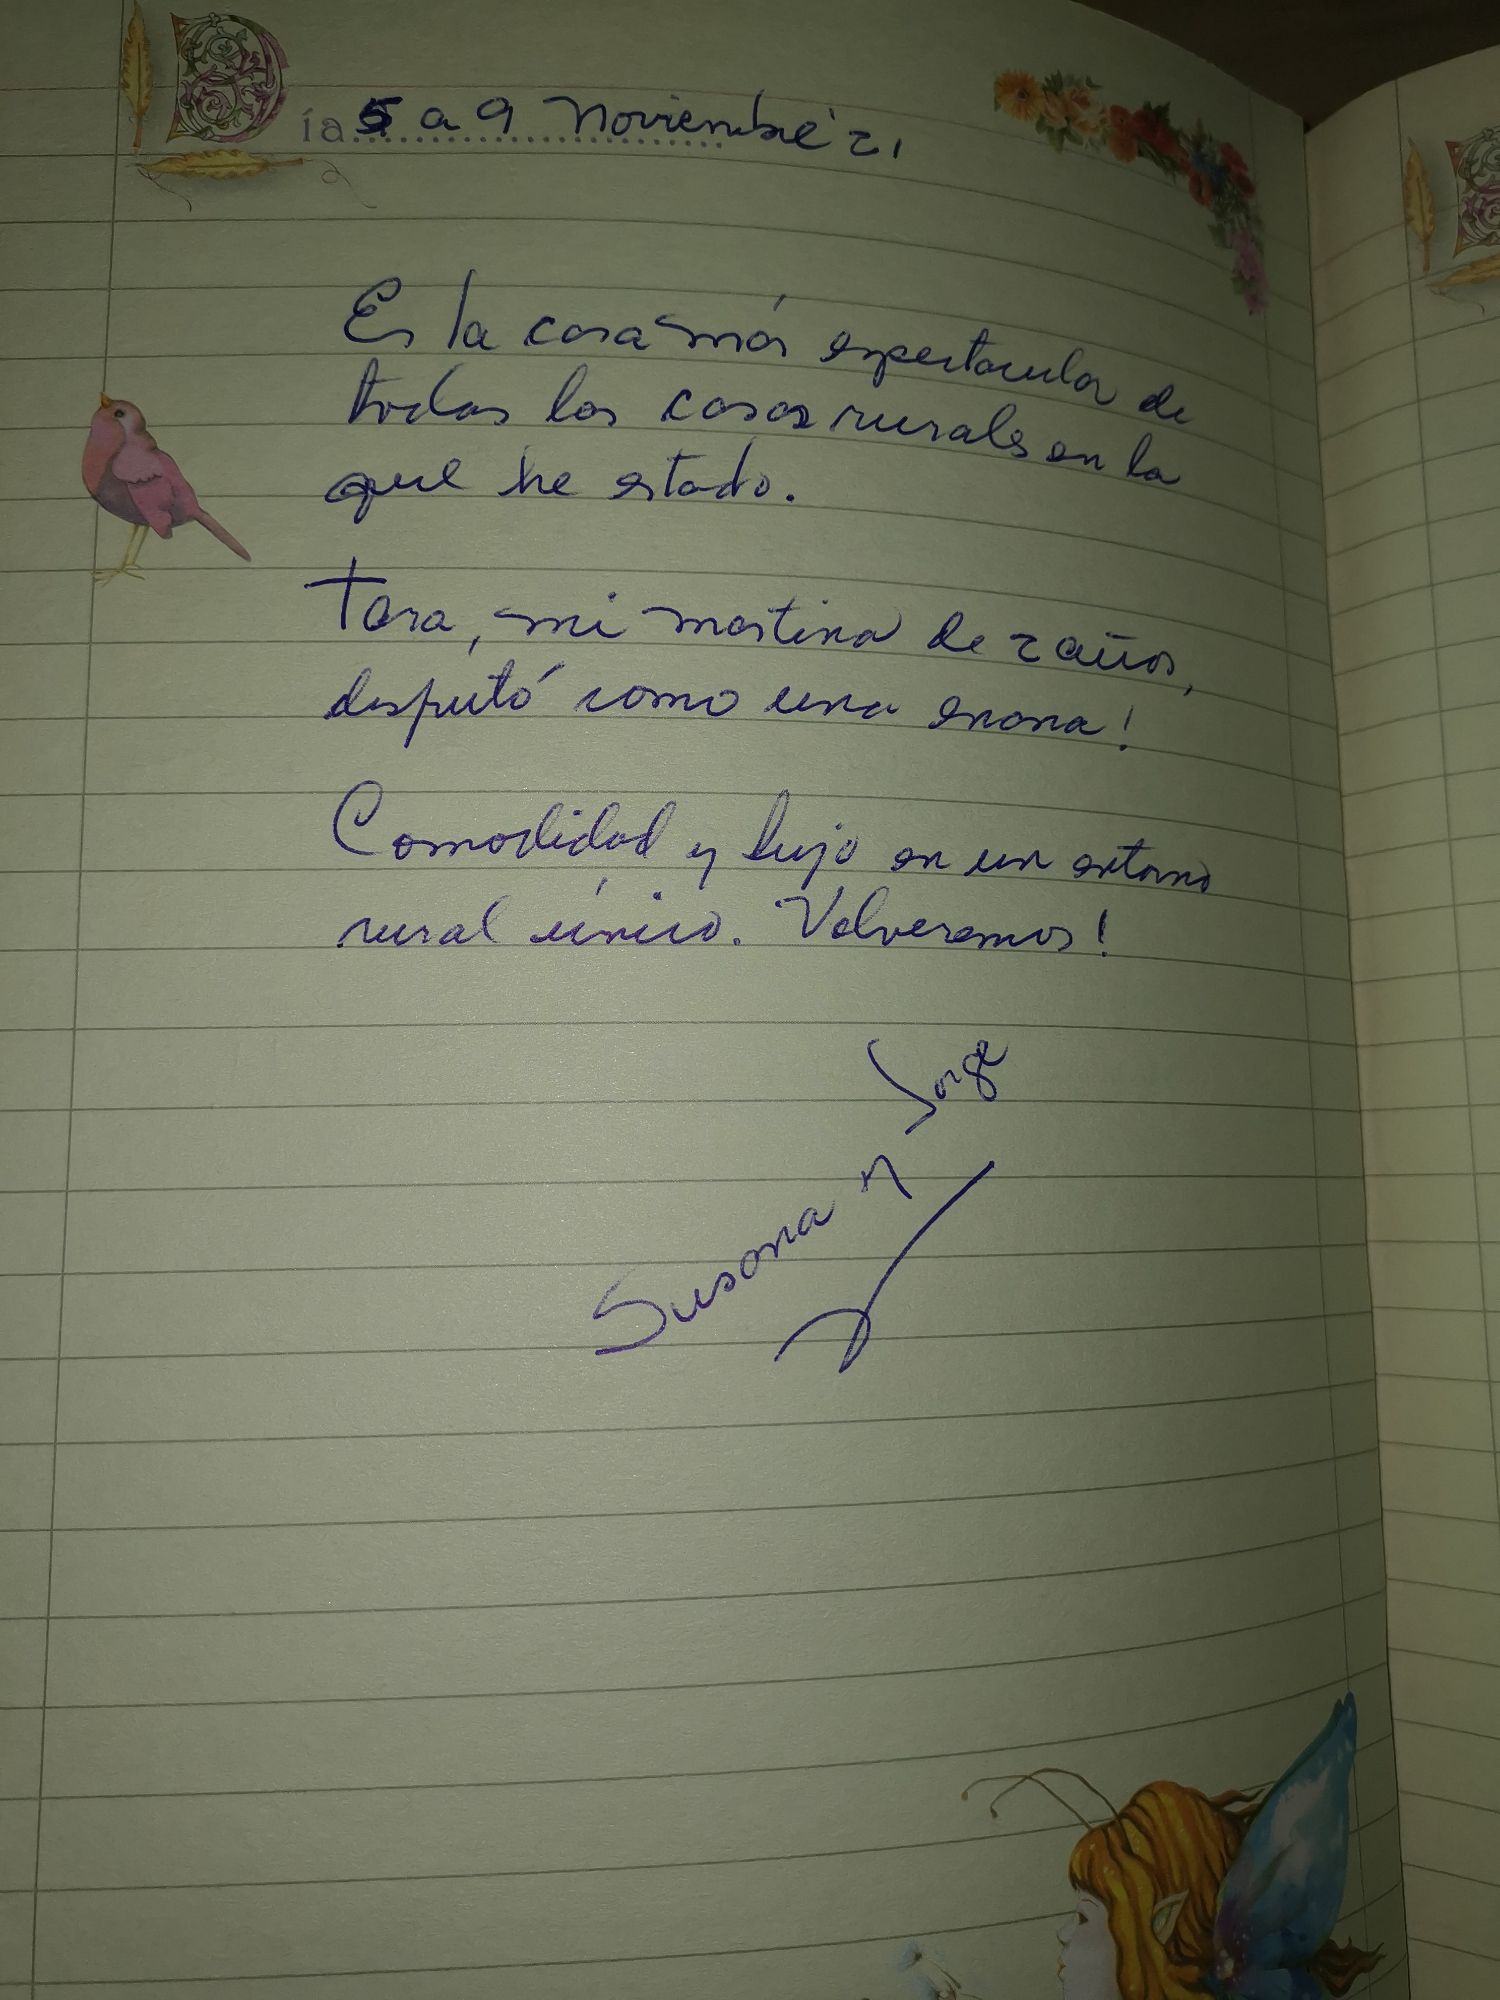 Día 5 a 9 Noviembre '21
Es la casa más espectacular de
todas las casas rurales en la
que he estado.
Tara, mi mastina de 2 años,
disfrutó como una enana!
Comodidad y lujo en un entorno
rural único. Volveremos!
Susana y Jorge